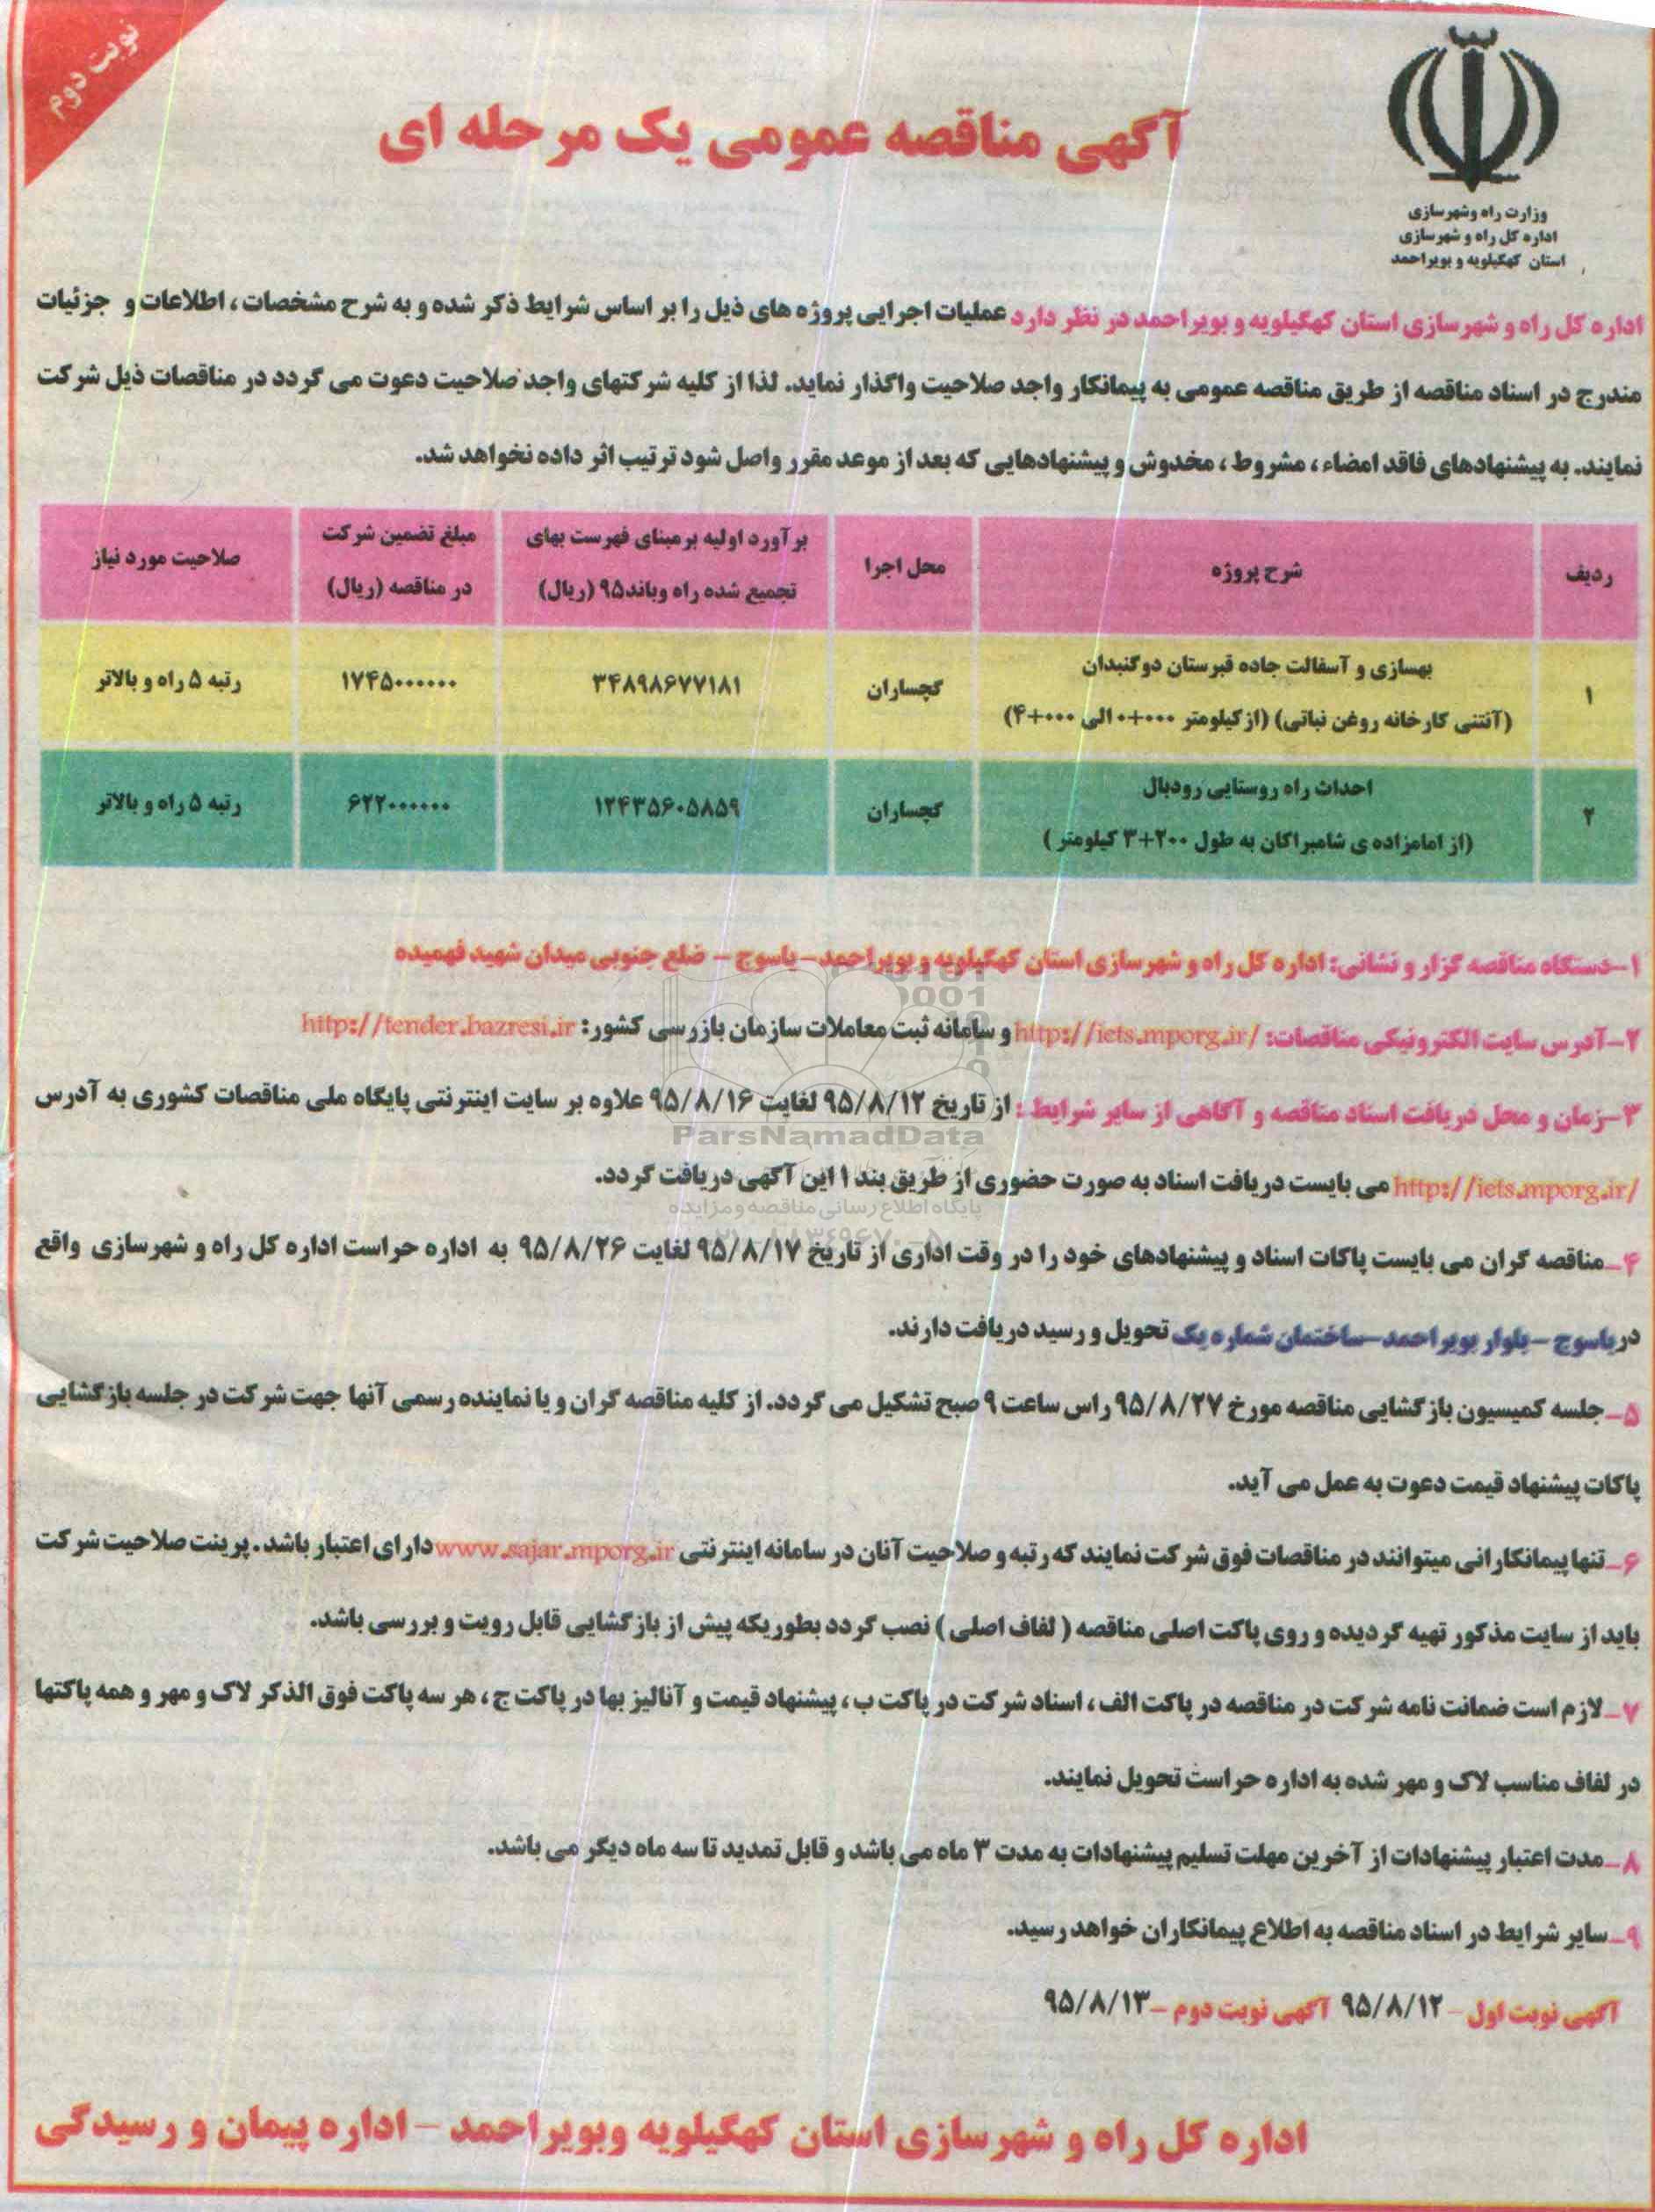 نوبت دوم
آگهی مناقصه عمومی یک مرحله ای
وزارت راه وشهرسازی
اداره کل راه و شهرسازی
استان کهگیلویه و بویراحمد
اداره کل راه و شهرسازی استان کهگیلویه و بویراحمد در نظر دارد عملیات اجرایی پروژه های ذیل را بر اساس شرایط ذکر شده و به شرح مشخصات ، اطلاعات و جزئیات
مندرج در اسناد مناقصه از طریق مناقصه عمومی به پیمانکار واجد صلاحیت واگذار نماید. لذا از کلیه شرکتهای واجد صلاحیت دعوت می گردد در مناقصات ذیل شرکت
نمایند. به پیشنهادهای فاقد امضاء ، مشروط ، مخدوش و پیشنهادهایی که بعد از موعد مقرر واصل شود ترتیب اثر داده نخواهد شد.
ردیف | شرح پروژه | محل اجرا | برآورد اولیه برمبنای فهرست بهای تجمیع شده راه وباند۹۵ (ریال) | مبلغ تضمین شرکت در مناقصه (ریال) | صلاحیت مورد نیاز
۱ | بهسازی و آسفالت جاده قبرستان دوگنبدان (آنتنی کارخانه روغن نباتی) (از کیلومتر ۰۰۰+۰ الی ۰۰۰+۴) | گچساران | ۳۴۸۹۸۶۷۷۱۸۱ | ۱۷۴۵۰۰۰۰۰۰ | رتبه ۵ راه و بالاتر
۲ | احداث راه روستایی رودبال (از امامزاده ی شامبراکان به طول ۲۰۰+۳ کیلومتر ) | گچساران | ۱۲۴۳۵۶۰۵۸۵۹ | ۶۲۲۰۰۰۰۰۰ | رتبه ۵ راه و بالاتر
۱-دستگاه مناقصه گزار و نشانی: اداره کل راه و شهرسازی استان کهگیلویه و بویراحمد- یاسوج - ضلع جنوبی میدان شهید فهمیده
۲-آدرس سایت الکترونیکی مناقصات: http://iets.mporg.ir/ و سامانه ثبت معاملات سازمان بازرسی کشور: http://tender.bazresi.ir
۳-زمان و محل دریافت اسناد مناقصه و آگاهی از سایر شرایط : از تاریخ ۹۵/۸/۱۲ لغایت ۹۵/۸/۱۶ علاوه بر سایت اینترنتی پایگاه ملی مناقصات کشوری به آدرس
http://iets.mporg.ir/ می بایست دریافت اسناد به صورت حضوری از طریق بند ۱ این آگهی دریافت گردد.
ParsNamadData
پایگاه اطلاع رسانی مناقصه و مزایده
۴_مناقصه گران می بایست پاکات اسناد و پیشنهادهای خود را در وقت اداری از تاریخ ۹۵/۸/۱۷ لغایت ۹۵/۸/۲۶ به اداره حراست اداره کل راه و شهرسازی واقع
در یاسوج -بلوار بویراحمد-ساختمان شماره یک تحویل و رسید دریافت دارند.
۵_جلسه کمیسیون بازگشایی مناقصه مورخ ۹۵/۸/۲۷ راس ساعت ۹ صبح تشکیل می گردد. از کلیه مناقصه گران و یا نماینده رسمی آنها جهت شرکت در جلسه بازگشایی
پاکات پیشنهاد قیمت دعوت به عمل می آید.
۶_تنها پیمانکارانی میتوانند در مناقصات فوق شرکت نمایند که رتبه و صلاحیت آنان در سامانه اینترنتی www.sajar.mporg.ir دارای اعتبار باشد. پرینت صلاحیت شرکت
باید از سایت مذکور تهیه گردیده و روی پاکت اصلی مناقصه ( لفاف اصلی ) نصب گردد بطوریکه پیش از بازگشایی قابل رویت و بررسی باشد.
۷_لازم است ضمانت نامه شرکت در مناقصه در پاکت الف ، اسناد شرکت در پاکت ب ، پیشنهاد قیمت و آنالیز بها در پاکت ج ، هر سه پاکت فوق الذکر لاک و مهر و همه پاکتها
در لفاف مناسب لاک و مهر شده به اداره حراست تحویل نمایند.
۸_مدت اعتبار پیشنهادات از آخرین مهلت تسلیم پیشنهادات به مدت ۳ ماه می باشد و قابل تمدید تا سه ماه دیگر می باشد.
۹_سایر شرایط در اسناد مناقصه به اطلاع پیمانکاران خواهد رسید.
آگهی نوبت اول - ۹۵/۸/۱۲ آگهی نوبت دوم -۹۵/۸/۱۳
اداره کل راه و شهرسازی استان کهگیلویه وبویراحمد - اداره پیمان و رسیدگی